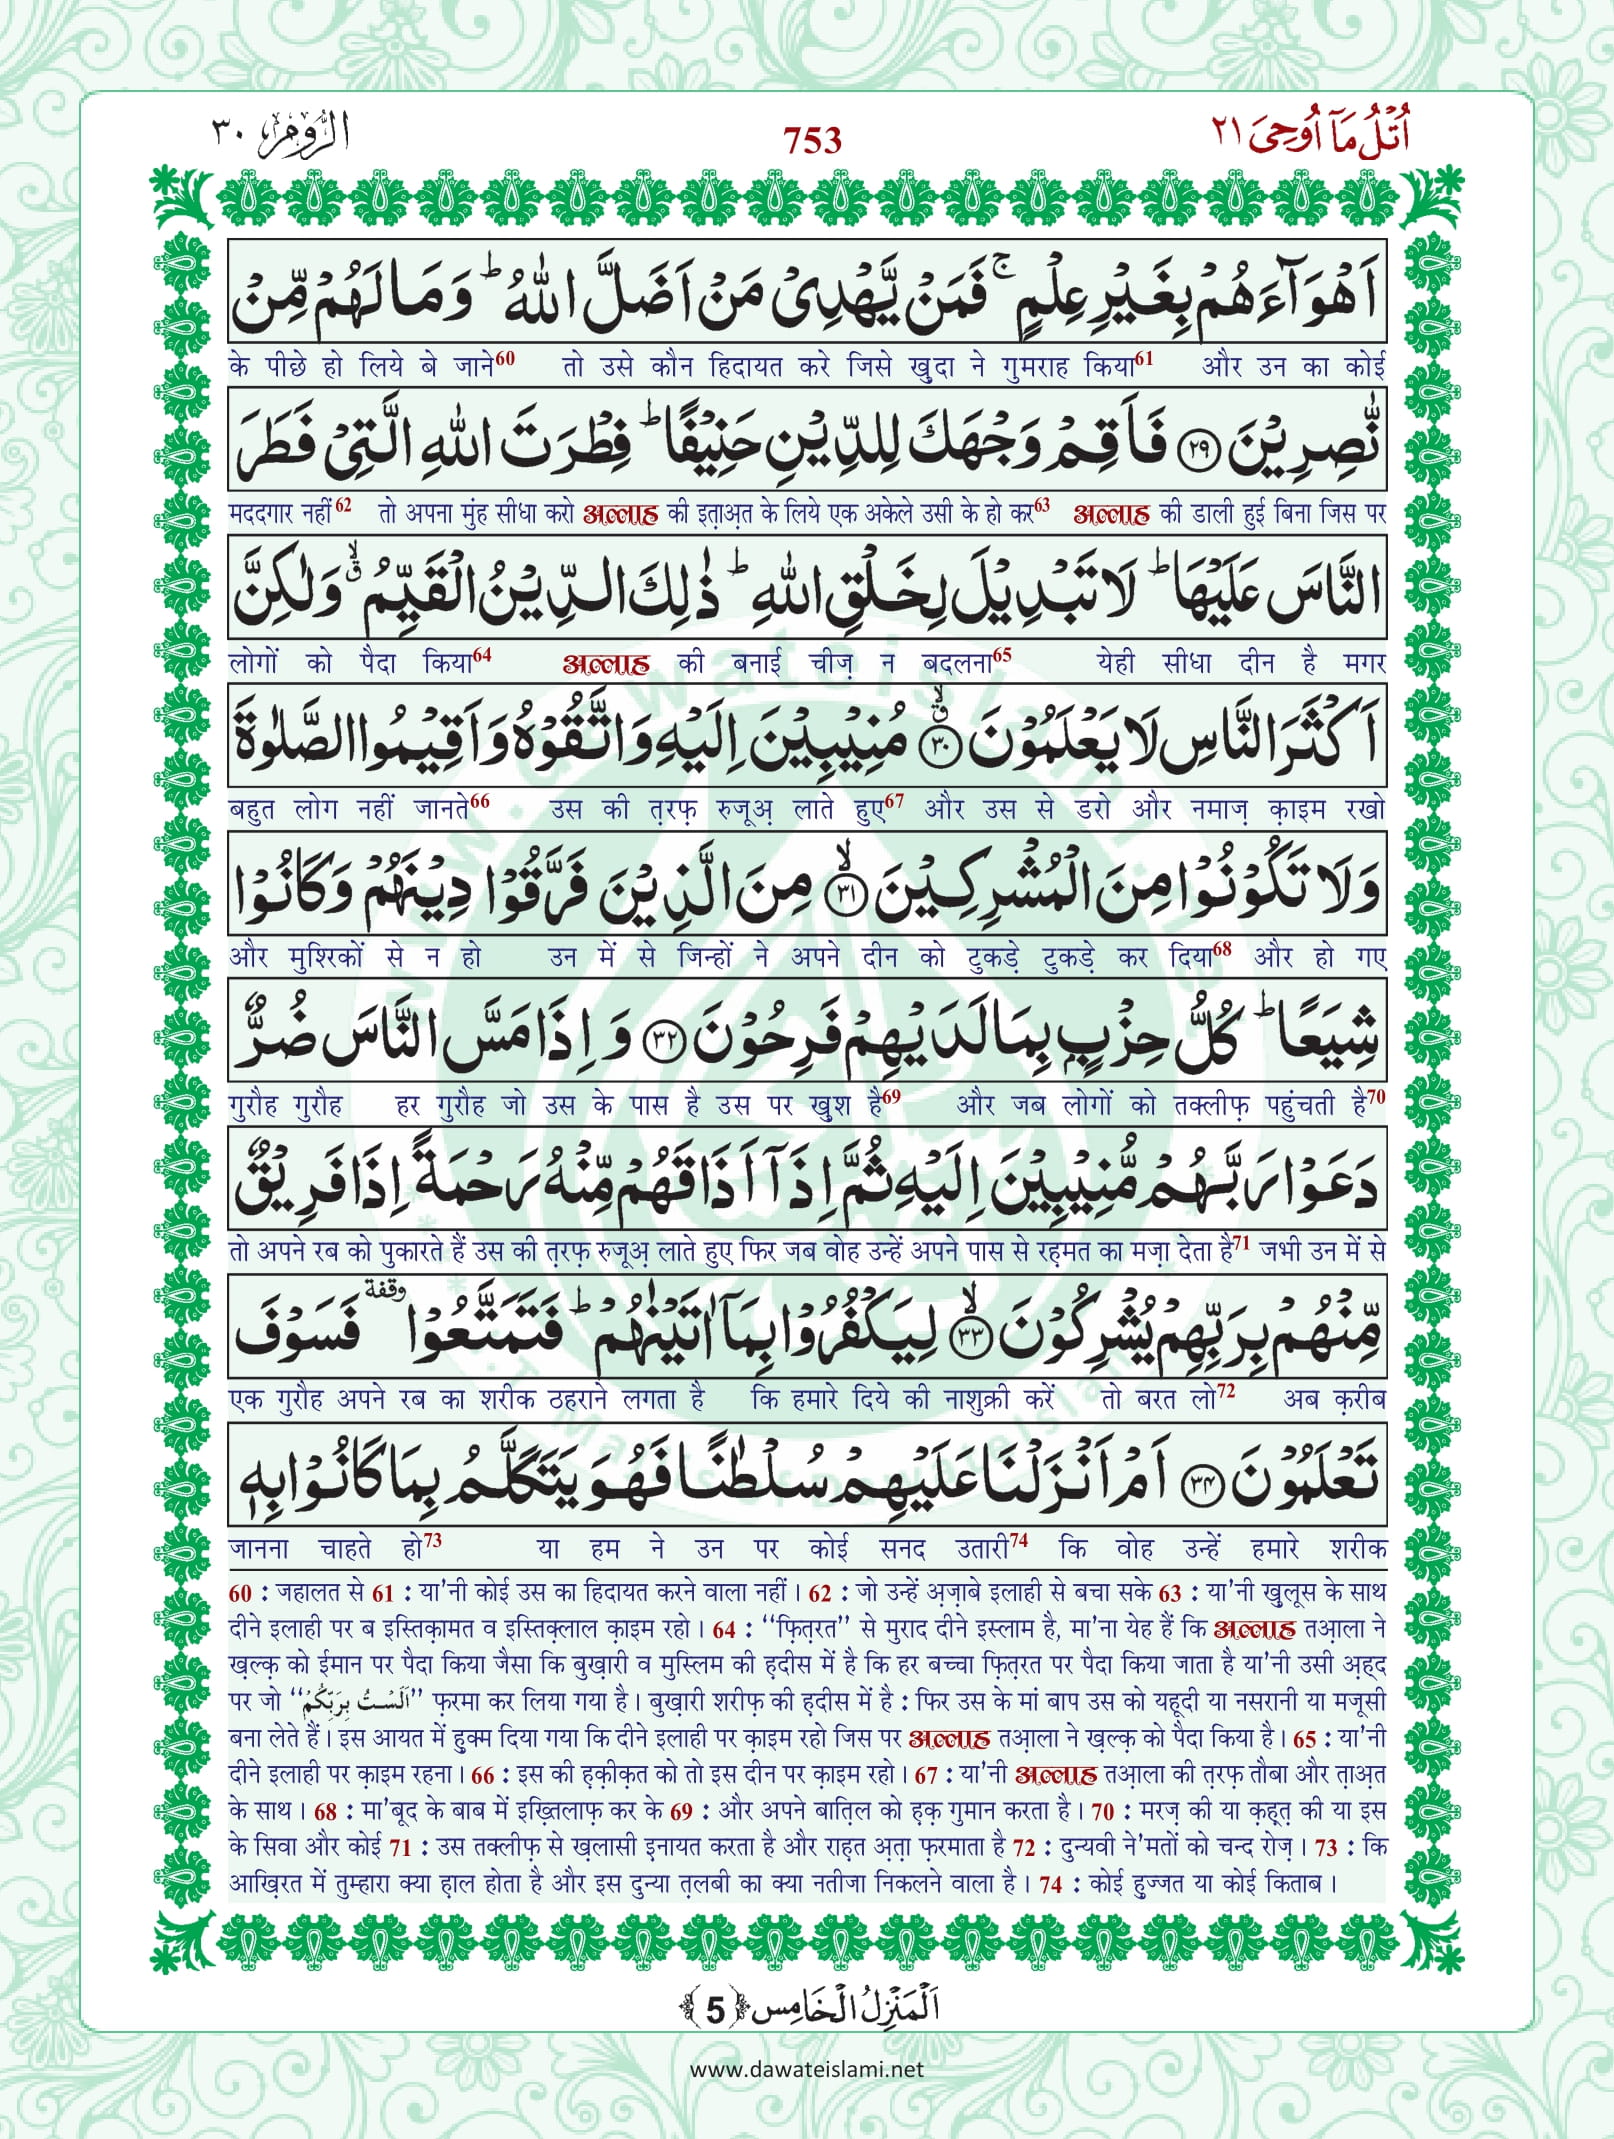 اُتْلُ مَاۤ اُوْحِیَ ٢١ 753 الرُّوْمِ ٣٠
اَهْوَآءَهُمْ بِغَیْرِ عِلْمٍ ۚ فَمَنْ یَّهْدِیْ مَنْ اَضَلَّ اللّٰهُ ؕ وَ مَا لَهُمْ مِّنْ
के पीछे हो लिये बे जाने60 तो उसे कौन हिदायत करे जिसे ख़ुदा ने गुमराह किया61 और उन का कोई
نّٰصِرِیْنَ ﴿٢٩﴾ فَاَقِمْ وَجْهَكَ لِلدِّیْنِ حَنِیْفًا ؕ فِطْرَتَ اللّٰهِ الَّتِیْ فَطَرَ
मददगार नहीं62 तो अपना मुंह सीधा करो अल्लाह की इत़ाअ़त के लिये एक अकेले उसी के हो कर63 अल्लाह की डाली हुई बिना जिस पर
النَّاسَ عَلَیْهَا ؕ لَا تَبْدِیْلَ لِخَلْقِ اللّٰهِ ؕ ذٰلِكَ الدِّیْنُ الْقَیِّمُ ۙۗ وَ لٰكِنَّ
लोगों को पैदा किया64 अल्लाह की बनाई चीज़ न बदलना65 येही सीधा दीन है मगर
اَكْثَرَ النَّاسِ لَا یَعْلَمُوْنَ ﴿٣٠﴾ ۙۗ مُنِیْبِیْنَ اِلَیْهِ وَ اتَّقُوْهُ وَ اَقِیْمُوا الصَّلٰوةَ
बहुत लोग नहीं जानते66 उस की त़रफ़ रुजूअ़ लाते हुए67 और उस से डरो और नमाज़ क़ाइम रखो
وَ لَا تَكُوْنُوْا مِنَ الْمُشْرِكِیْنَ ﴿٣١﴾ ۙ مِنَ الَّذِیْنَ فَرَّقُوْا دِیْنَهُمْ وَ كَانُوْا
और मुश्रिकों से न हो उन में से जिन्हों ने अपने दीन को टुकड़े टुकड़े कर दिया68 और हो गए
شِیَعًا ؕ كُلُّ حِزْبٍۭ بِمَا لَدَیْهِمْ فَرِحُوْنَ ﴿٣٢﴾ وَ اِذَا مَسَّ النَّاسَ ضُرٌّ
गुरौह गुरौह हर गुरौह जो उस के पास है उस पर ख़ुश है69 और जब लोगों को तक्लीफ़ पहुंचती है70
دَعَوْا رَبَّهُمْ مُّنِیْبِیْنَ اِلَیْهِ ثُمَّ اِذَاۤ اَذَاقَهُمْ مِّنْهُ رَحْمَةً اِذَا فَرِیْقٌ
तो अपने रब को पुकारते हैं उस की त़रफ़ रुजूअ़ लाते हुए फिर जब वोह उन्हें अपने पास से रह़मत का मज़ा देता है71 जभी उन में से
مِّنْهُمْ بِرَبِّهِمْ یُشْرِكُوْنَ ﴿٣٣﴾ ۙ لِیَكْفُرُوْا بِمَاۤ اٰتَیْنٰهُمْ ؕ فَتَمَتَّعُوْا ۥ وقفة فَسَوْفَ
एक गुरौह अपने रब का शरीक ठहराने लगता है कि हमारे दिये की नाशुक्री करें तो बरत लो72 अब क़रीब
تَعْلَمُوْنَ ﴿٣٤﴾ اَمْ اَنْزَلْنَا عَلَیْهِمْ سُلْطٰنًا فَهُوَ یَتَكَلَّمُ بِمَا كَانُوْا بِهٖ
जानना चाहते हो73 या हम ने उन पर कोई सनद उतारी74 कि वोह उन्हें हमारे शरीक
60 : जहालत से 61 : या'नी कोई उस का हिदायत करने वाला नहीं। 62 : जो उन्हें अ़ज़ाबे इलाही से बचा सके 63 : या'नी ख़ुलूस के साथ
दीने इलाही पर ब इस्तिक़ामत व इस्तिक़्लाल क़ाइम रहो। 64 : ‘‘फ़ित़रत’’ से मुराद दीने इस्लाम है, मा'ना येह हैं कि अल्लाह तआ़ला ने
ख़ल्क़ को ईमान पर पैदा किया जैसा कि बुख़ारी व मुस्लिम की ह़दीस में है कि हर बच्चा फ़ित़रत पर पैदा किया जाता है या'नी उसी अ़ह्द
पर जो ‘‘اَلَسْتُ بِرَبِّكُمْ’’ फ़रमा कर लिया गया है। बुख़ारी शरीफ़ की ह़दीस में है : फिर उस के मां बाप उस को यहूदी या नसरानी या मजूसी
बना लेते हैं। इस आयत में हुक्म दिया गया कि दीने इलाही पर क़ाइम रहो जिस पर अल्लाह तआ़ला ने ख़ल्क़ को पैदा किया है। 65 : या'नी
दीने इलाही पर क़ाइम रहना। 66 : इस की ह़क़ीक़त को तो इस दीन पर क़ाइम रहो। 67 : या'नी अल्लाह तआ़ला की त़रफ़ तौबा और त़ाअ़त
के साथ। 68 : मा'बूद के बाब में इख़्तिलाफ़ कर के 69 : और अपने बात़िल को ह़क़ गुमान करता है। 70 : मरज़ की या क़ह़त़ की या इस
के सिवा और कोई 71 : उस तक्लीफ़ से ख़लासी इनायत करता है और राह़त अ़त़ा फ़रमाता है 72 : दुन्यवी ने'मतों को चन्द रोज़। 73 : कि
आख़िरत में तुम्हारा क्या ह़ाल होता है और इस दुन्या त़लबी का क्या नतीजा निकलने वाला है। 74 : कोई हुज्जत या कोई किताब।
اَلْمَنْزِلُ الْخَامِس ﴿5﴾
www.dawateislami.net